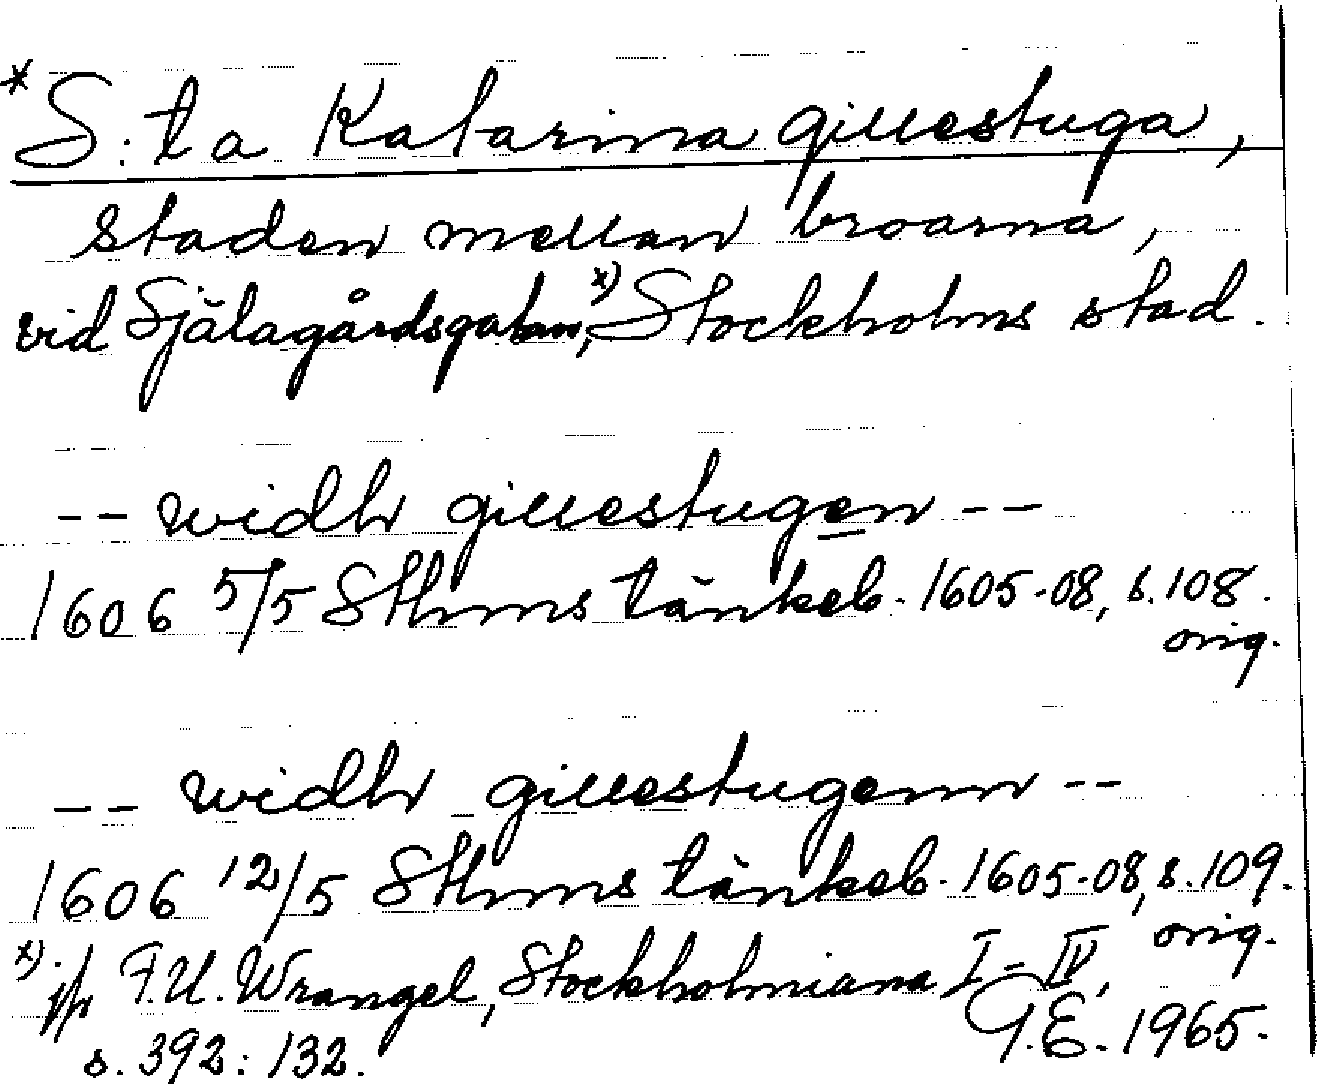 * S:ta Katarina gillestuga,
staden mellan broarna,
vid Själagårdsgatan,x) Stockholms stad.
-- widh gillestugen --
1606 5/5 Sthms tänkeb. 1605-08, s. 108.
orig.
-- widh gillestugenn --
1606 12/5 Sthms tänkeb. 1605-08, s. 109.
orig.
x). jfr F.U. Wrangel, Stockholmiana I-IV,
s. 392: 132.
G.E. 1965.